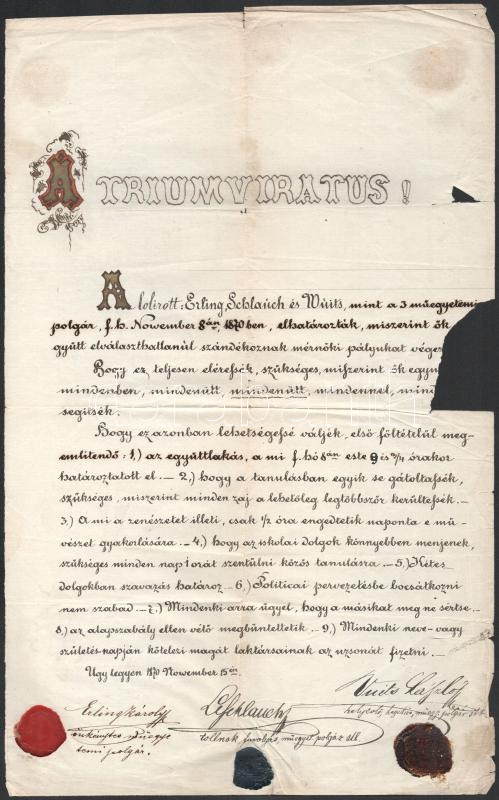 A TRIUMVIRATUS!
Alolirott: Erling, Schlauch és Wuits, mint a 3 műegyetemi
polgár, f. h. November 8án 1870 ben, elhatározták, miszerint ők
gyütt elválaszthatlanúl szándékoznak mérnöki pályukat vége
Hogy ez teljesen elérefsék, szükséges, mifzerint ők egym
mindenben, mindenütt, mindenütt, mindennel, mind
segitsék.
Hogy ez azonban lehetségefsé váljék, első föltételűl meg-
emlitendő: 1,) az együttlakás, a mi f. hó 8án este 9 és 3/4 órakor
határoztatott el. — 2,) hogy a tanulásban egyik se gátoltafsék,
szükséges, miszerint minden zaj a lehetőleg legtöbbször kerültefsék. —
3,) A mi a zenészetet illeti, csak 1/2 óra engedtetik naponta e mű-
vészet gyakorlására. — 4,) hogy az iskolai dolgok könnyebben menjenek,
szükséges minden nap 1 órát szentülni közös tanulásra. — 5,) Kétes
dolgokban szavazás határoz — 6,) Politicai pervezetésbe bocsátkozni
nem szabad — 7,) Mindenki arra ügyel, hogy a másikat meg ne sértse. —
8,) az alapszabály ellen vétő megbüntettetik — 9,) Mindenki neve- vagy
születés-napján kötelezi magát laktársainak az uzsonát fizetni. —
Ugy legyen 1870 November 15én
Vuits László
Erling Károly LSchlauch
önkénytes műegye- tollnok, műegyet. polgár stb.
temi polgár.